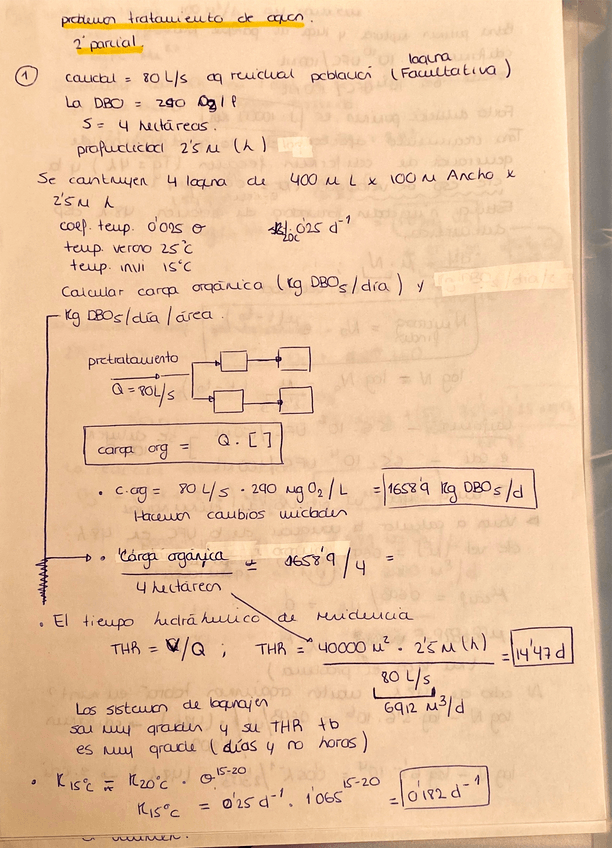 problemas tratamiento de aguas.
2º parcial.
① caudal = 80 L/s aq residual población (laguna Facultativa)
La DBO = 290 mg/l
S = 4 hectáreas.
profundidad 2'5 M (h)
Se construyen 4 laguna de 400 M L x 100 M Ancho x
2'5 M h
coef. temp. 0'065 θ K20ºC: 0'25 d⁻¹
temp. verano 25°C
temp. invi 15°C
Calcular carga orgánica (Kg DBO₅/día) y
Kg DBO₅/día/área.
pretratamiento
Q = 80L/s
carga org = Q · [ ]
• c.og = 80 L/s · 290 mg O₂/L = 1658'9 Kg DBO₅/d
Hacemos cambios unidades
• Carga orgánica / 4 hectáreas = 1658'9/4 =
• El tiempo hidráhulico de residencia
THR = V/Q ; THR = 40000 M² · 2'5 M (h) / 80 L/s = 14'47 d
6912 M³/d
Los sistemas de lagunajen
son muy grandes y su THR tb
es muy grande (días y no horas)
• K15°C = K20°C · θ¹⁵⁻²⁰
K15°C = 0'25 d⁻¹ · 1'065¹⁵⁻²⁰ = 0'182 d⁻¹